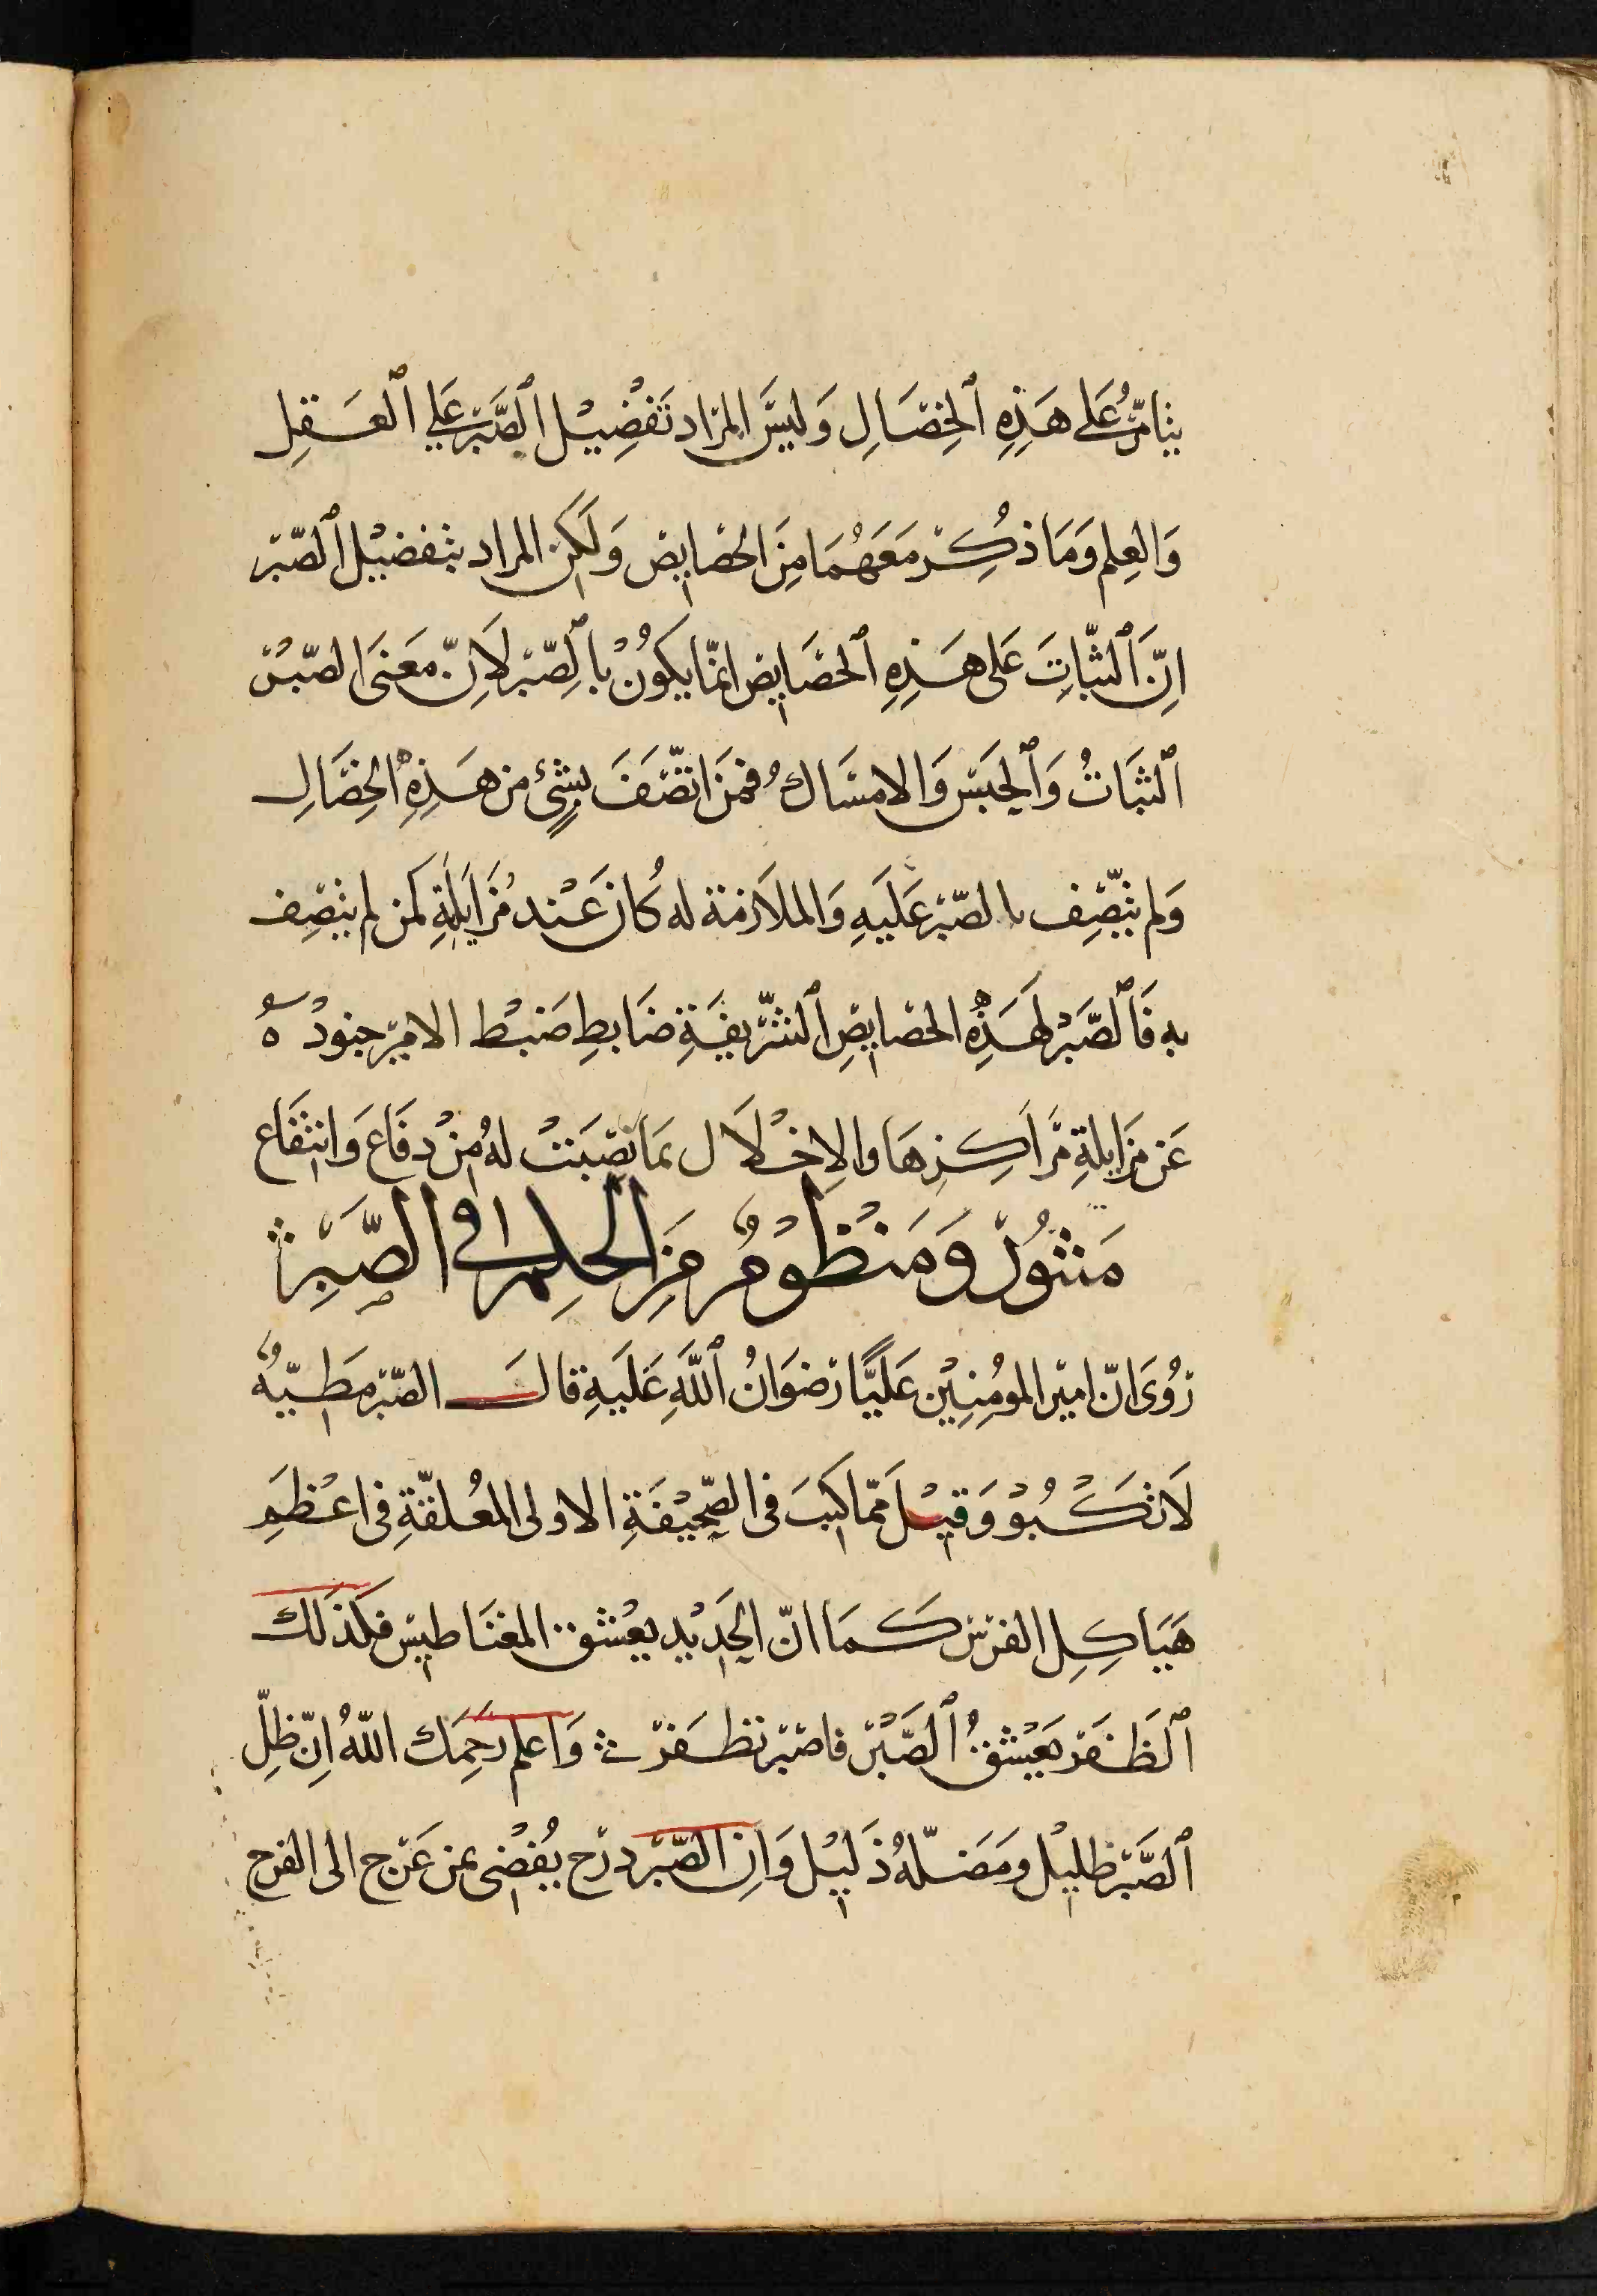 يتامّرُ عَلى هَذِهِ ٱلخِصَالِ وَليسَ المرَاد تَفضِيْل ٱلصَّبر عَلي ٱلعَقلِ
وَالعِلم وَمَا ذكِرْ مَعَهُمَا مِنَ الخصَايص وَلَكن المراد بتفضيْل ٱلصّبر
اِنَّ ٱلثّبَاتَ عَلى هَذِهِ ٱلخصَايص انمّا يكَونُ بٱلصّبرْ لاَنّ مَعَنى الصّبْر
ٱلثبَاتُ وَٱلحبَس وَالامسَاكُ فمَن اتّصَفَ بشئٍ من هَذِهِ الخِصَالِ
وَلم يتّصِف بالصّبر عَلَيهِ وَالملاَزمة له كُان عَند مُزَايَلةِ كمن لم يتصِف
به فَٱلصَّبَرْ لهَذِهِ الخصَايصِ ٱلشّريفَةِ ضَابطِ ضبْط الاميْر جنودْه
عَن مزَايلةِ مَرَاكِزِهَا والاِخْلاَل بمَا نصِبَتْ لهُ مِنْ دفَاع وَانتفَاع
مَنثوُرٌ وَمَنْظوُمٌ مِنَ الحِكمِ في الصَّبَرِ
رُوُىَ انّ اميْر المومُنِيْن عَليًّا رضوَانُ ٱللَّهِ عَلَيهِ قال الصّبر مَطيّةٌ
لاَ تكْبُوْ وَقيْل ممّا كتبَ في الصّحيْفَةِ الاولى المعُلقّةِ في اعْظَمِ
هَيَاكِل الفرْس كَمَا انّ الحَديْد يعْشق المغنَاطيس فكَذلك
ٱلظَفَر يَعْشقُ ٱلصَّبْر فاصْبر تظفَرْ وَاعلم رحِمَك اللّهُ اِنّ ظِلّ
ٱلصَّبر ظليْل وَمضَلّهُ ذَليْل وَان الصّبْر درَج يُفضْى بمن عَرَج الى الفرج